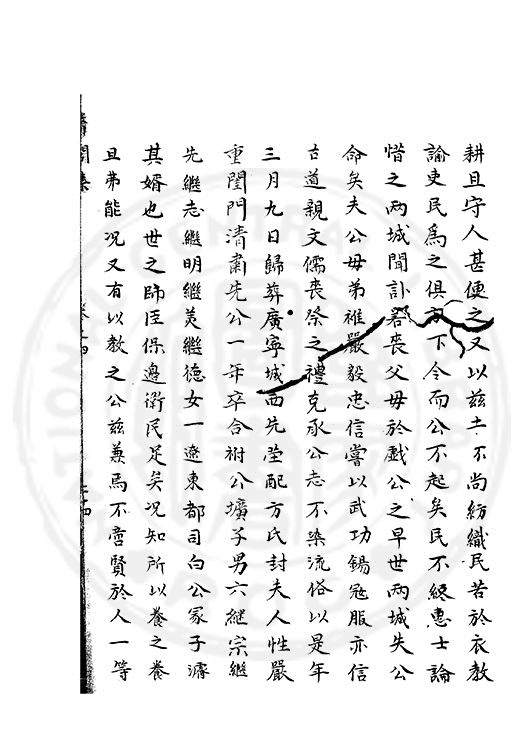 耕且守人甚便之又以茲土不尚紡織民苦於衣教
諭吏民為之俱下令而公不起矣民不終惠士論
惜之兩城聞訃若喪父母於戲公之早世兩城失公
命矣夫公母弟維嚴毅忠信嘗以武功錫冠服亦信
古道親文儒喪祭之禮克承公志不染流俗以是年
三月九日歸葬廣寧城西先塋配方氏封夫人性嚴
重閨門清肅先公一年卒合祔公壙子男六繼宗繼
先繼志繼明繼美繼德女一遼東都司白公冢子濬
其壻也世之師臣保邊衛民足矣況知所以養之養
且弗能況又有以教之公茲兼焉不啻賢於人一等